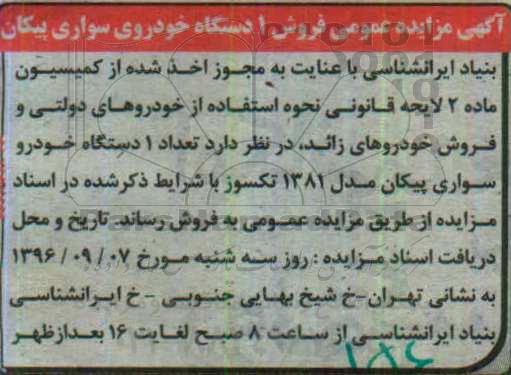 آگهی مزایده عمومی فروش ۱ دستگاه خودروی سواری پیکان
بنیاد ایرانشناسی با عنایت به مجوز اخذ شده از کمیسیون
ماده ۲ لایحه قانونی نحوه استفاده از خودروهای دولتی و
فروش خودروهای زائد، در نظر دارد تعداد ۱ دستگاه خودرو
سواری پیکان مدل ۱۳۸۱ تکسوز با شرایط ذکرشده در اسناد
مزایده از طریق مزایده عمومی به فروش رساند. تاریخ و محل
دریافت اسناد مزایده : روز سه شنبه مورخ ۰۷ / ۰۹ / ۱۳۹۶
به نشانی تهران-خ شیخ بهایی جنوبی - خ ایرانشناسی
بنیاد ایرانشناسی از ساعت ۸ صبح لغایت ۱۶ بعدازظهر